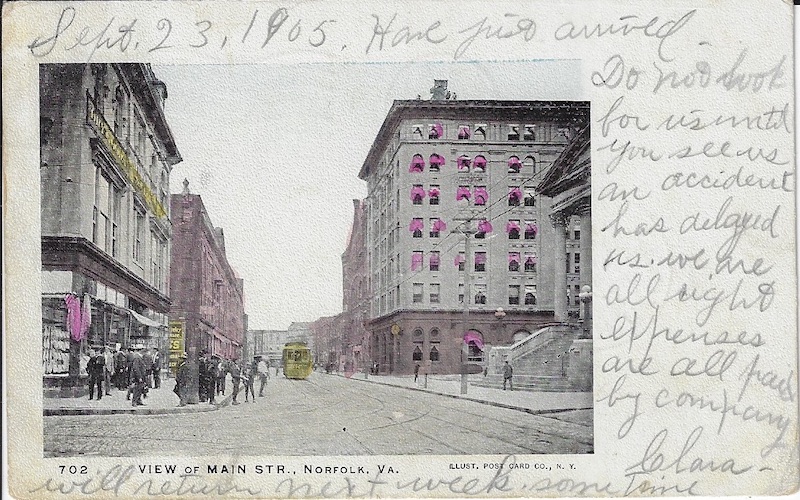 Sept. 23, 1905. Have just arrived.
Do not look
for us until
you see us
an accident
has delayed
us. we are
all right
expenses
are all paid
by company
Clara-
will return next week sometime
702 VIEW OF MAIN STR., NORFOLK, VA. ILLUST. POST CARD CO., N. Y.